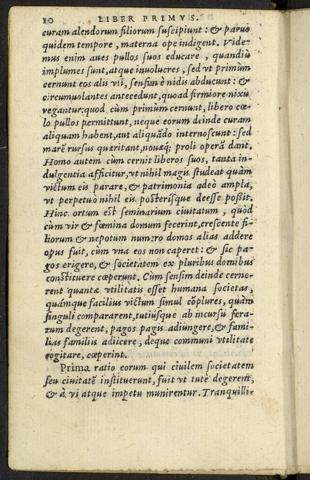 10 LIBER PRIMVS.
curam alendorum filiorum suscipiunt: & paruo
quidem tempore, materna ope indigent. Vide-
mus enim aues pullos suos educare, quandiù
implumes sunt, atque inuolucres, sed vt primùm
cernunt eos alis vti, sensim è nidis abducunt: &
circumuolantes antecedunt, quoad firmiore nixu
vegantur: quod cùm primùm cernunt, libero cœ-
lo pullos permittunt, neque eorum deinde curam
aliquam habent, aut aliquādo internoscunt: sed
marē rursus queritant, nouæq́; proli operā dant.
Homo autem cùm cernit liberos suos, tanta in-
dulgentia afficitur, vt nihil magis studeat quàm
victum eis parare, & patrimonia adeò ampla,
vt perpetuò nihil eis posterisque deesse possit.
Hinc ortum est seminarium ciuitatum, quòd
cùm vir & fœmina domum fecerint, crescente fi-
liorum & nepotum numero domos alias addere
opus fuit, cùm vna eos non caperet: & sic pa-
gos erigere, & societatem ex pluribus domibus
constituere cœperunt. Cùm sensim deinde cerne-
rent quanta vtilitatis esset humana societas,
quámque facilius victum simul cōplures, quàm
singuli compararent, tutiúsque ab incursu fera-
rum degerent, pagos pagis adiungere, & fami-
lias familiis adiicere, deque communi vtilitate
cogitare, cœperint.
Prima ratio eorum qui ciuilem societatem
seu ciuitatē instituerunt, fuit vt tutè degerent,
& à vi atque impetu munirentur. Tranquilli-